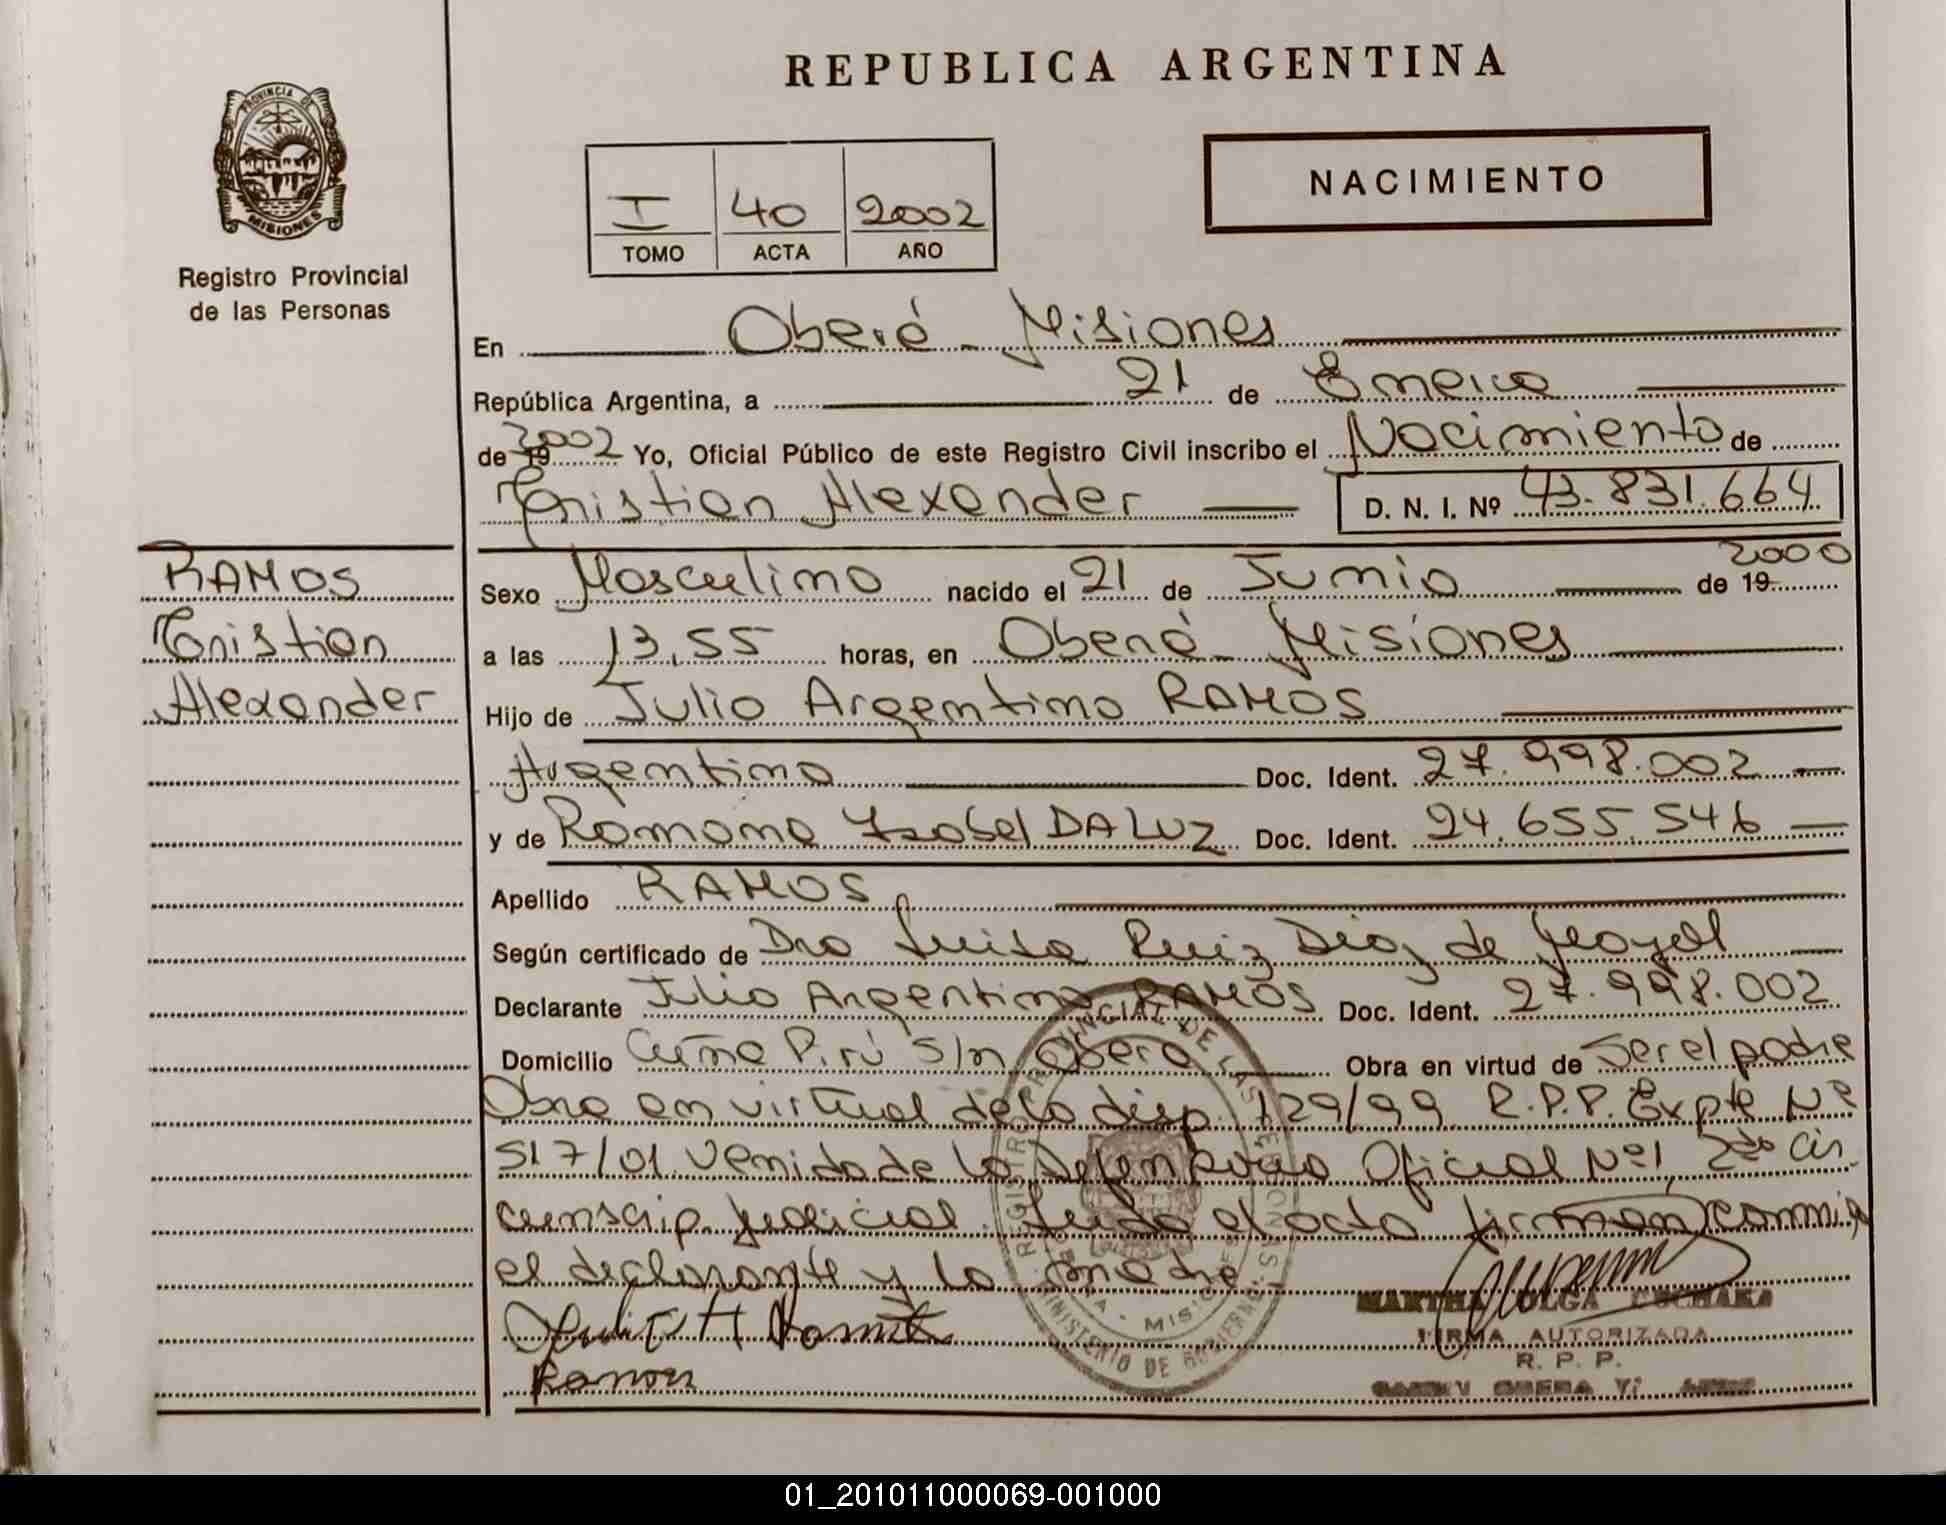 REPUBLICA ARGENTINA
PROVINCIA DE
MISIONES
Registro Provincial
de las Personas
I 40 2002
TOMO ACTA AÑO
NACIMIENTO
En Oberá - Misiones
República Argentina, a 21 de Enero
de 19 2002 Yo, Oficial Público de este Registro Civil inscribo el Nacimiento de
Cristian Alexander D. N. I. Nº 43.831.664
RAMOS
Cristian
Alexander
Sexo Masculino nacido el 21 de Junio de 19 2000
a las 13,55 horas, en Oberá - Misiones
Hijo de Julio Argentino RAMOS
Argentino Doc. Ident. 27.998.002
y de Romona Ysabel DA LUZ Doc. Ident. 24.655.546
Apellido RAMOS
Según certificado de Dra Luisa Ruiz Diaz de
Declarante Julio Argentino RAMOS Doc. Ident. 27.998.002
Domicilio Cuña Pirú S/n Oberá Obra en virtud de Ser el padre
Obra en virtud de la disp. 129/99 R.P.P. Expte Nº
517/01 venida de la Defensoria Oficial Nº1, 2da Cir
cunscrip. Judicial. Leida el acta firman conmigo
el declarante y la madre.
MARTHA OLGA
FIRMA AUTORIZADA
R. P. P.
Ramon
REGISTRO PROVINCIAL DE LAS PERSONAS
MINISTERIO DE GOBIERNO
01_201011000069-001000